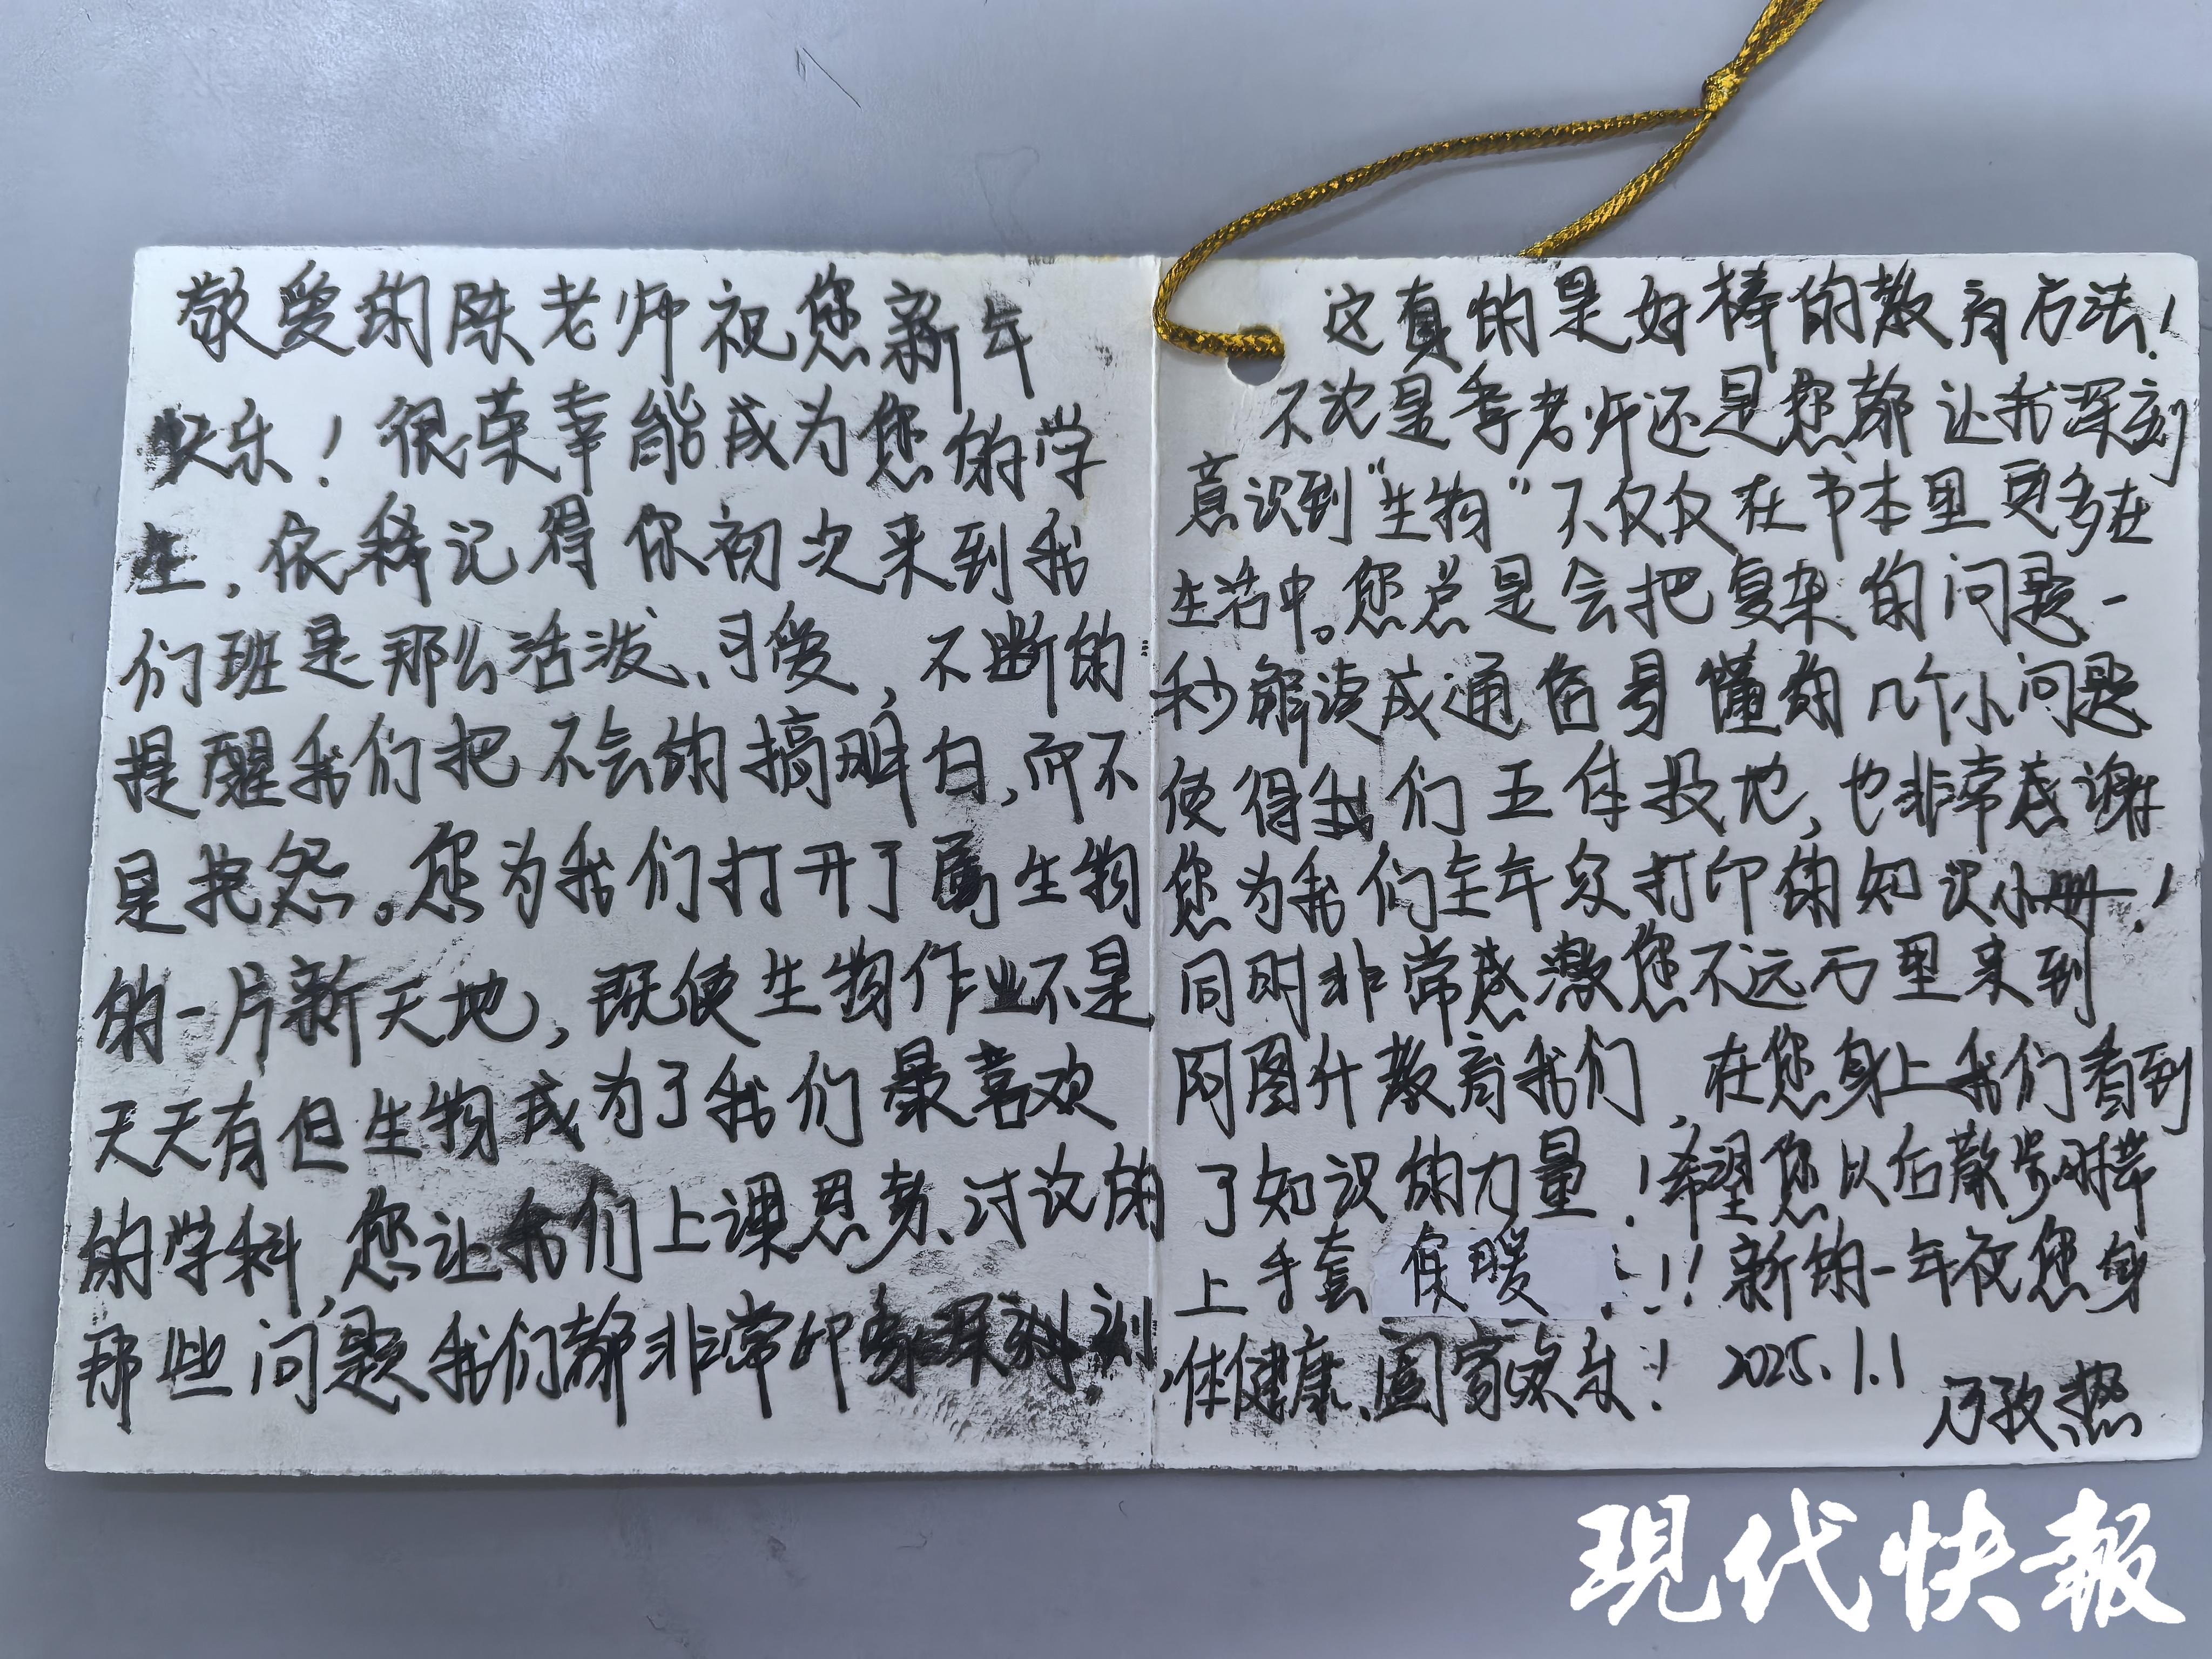 敬爱的陈老师祝您新年
快乐！很荣幸能成为您的学
生，依稀记得你初次来到我
们班是那么活泼、可爱，不断的
提醒我们把不会的搞明白，而不
是抱怨。您为我们打开了属生物
的一片新天地，既使生物作业不是
天天有但生物成为了我们最喜欢
的学科，您让我们上课思考、讨论的
那些问题我们都非常印象深刻
这真的是好棒的教育方法！
不论是李老师还是您都让我深刻
意识到“生物”不仅仅在书本里更多在
生活中。您总是会把复杂的问题一
秒解读成通俗易懂的几个小问题
使得我们五体投地，也非常感谢
您为我们全年级打印的知识小册！
同时非常感激您不远万里来到
阿图什教育我们，在您身上我们看到
了知识的力量！希望您以后散步时带
上手套保暖！！！新的一年祝您身
体健康、阖家欢乐！2025.1.1
乃孜热
現代快報